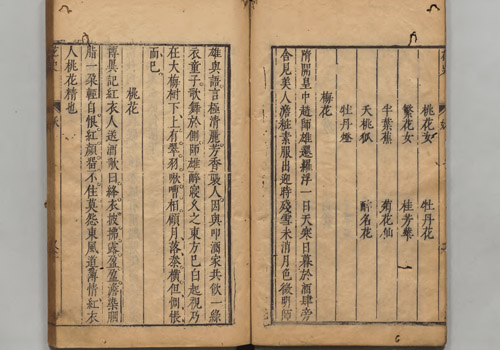 桃花女　牡丹花
繁花女　桂芳華
半葉蕉　菊花仙
夭桃狐　醉名花
牡丹燈
梅花
隋開皇中趙師雄遷羅浮一日天寒日暮於酒肆旁
舍見美人澹粧素服出迎時殘雪未消月色微明師
雄與語言極清麗芳香襲人因與叩酒家共飲一綠
衣童子歌舞於側師雄醉寢久之東方已白起視乃
在大梅樹下上有翠羽啾嘈相顧月落參橫但惆悵
而已
桃花
博異記紅衣人送酒歌曰絳衣披拂露盈盈澹染胭
脂一朶輕自恨紅顔畱不住莫怨東風道薄情紅衣
人桃花精也